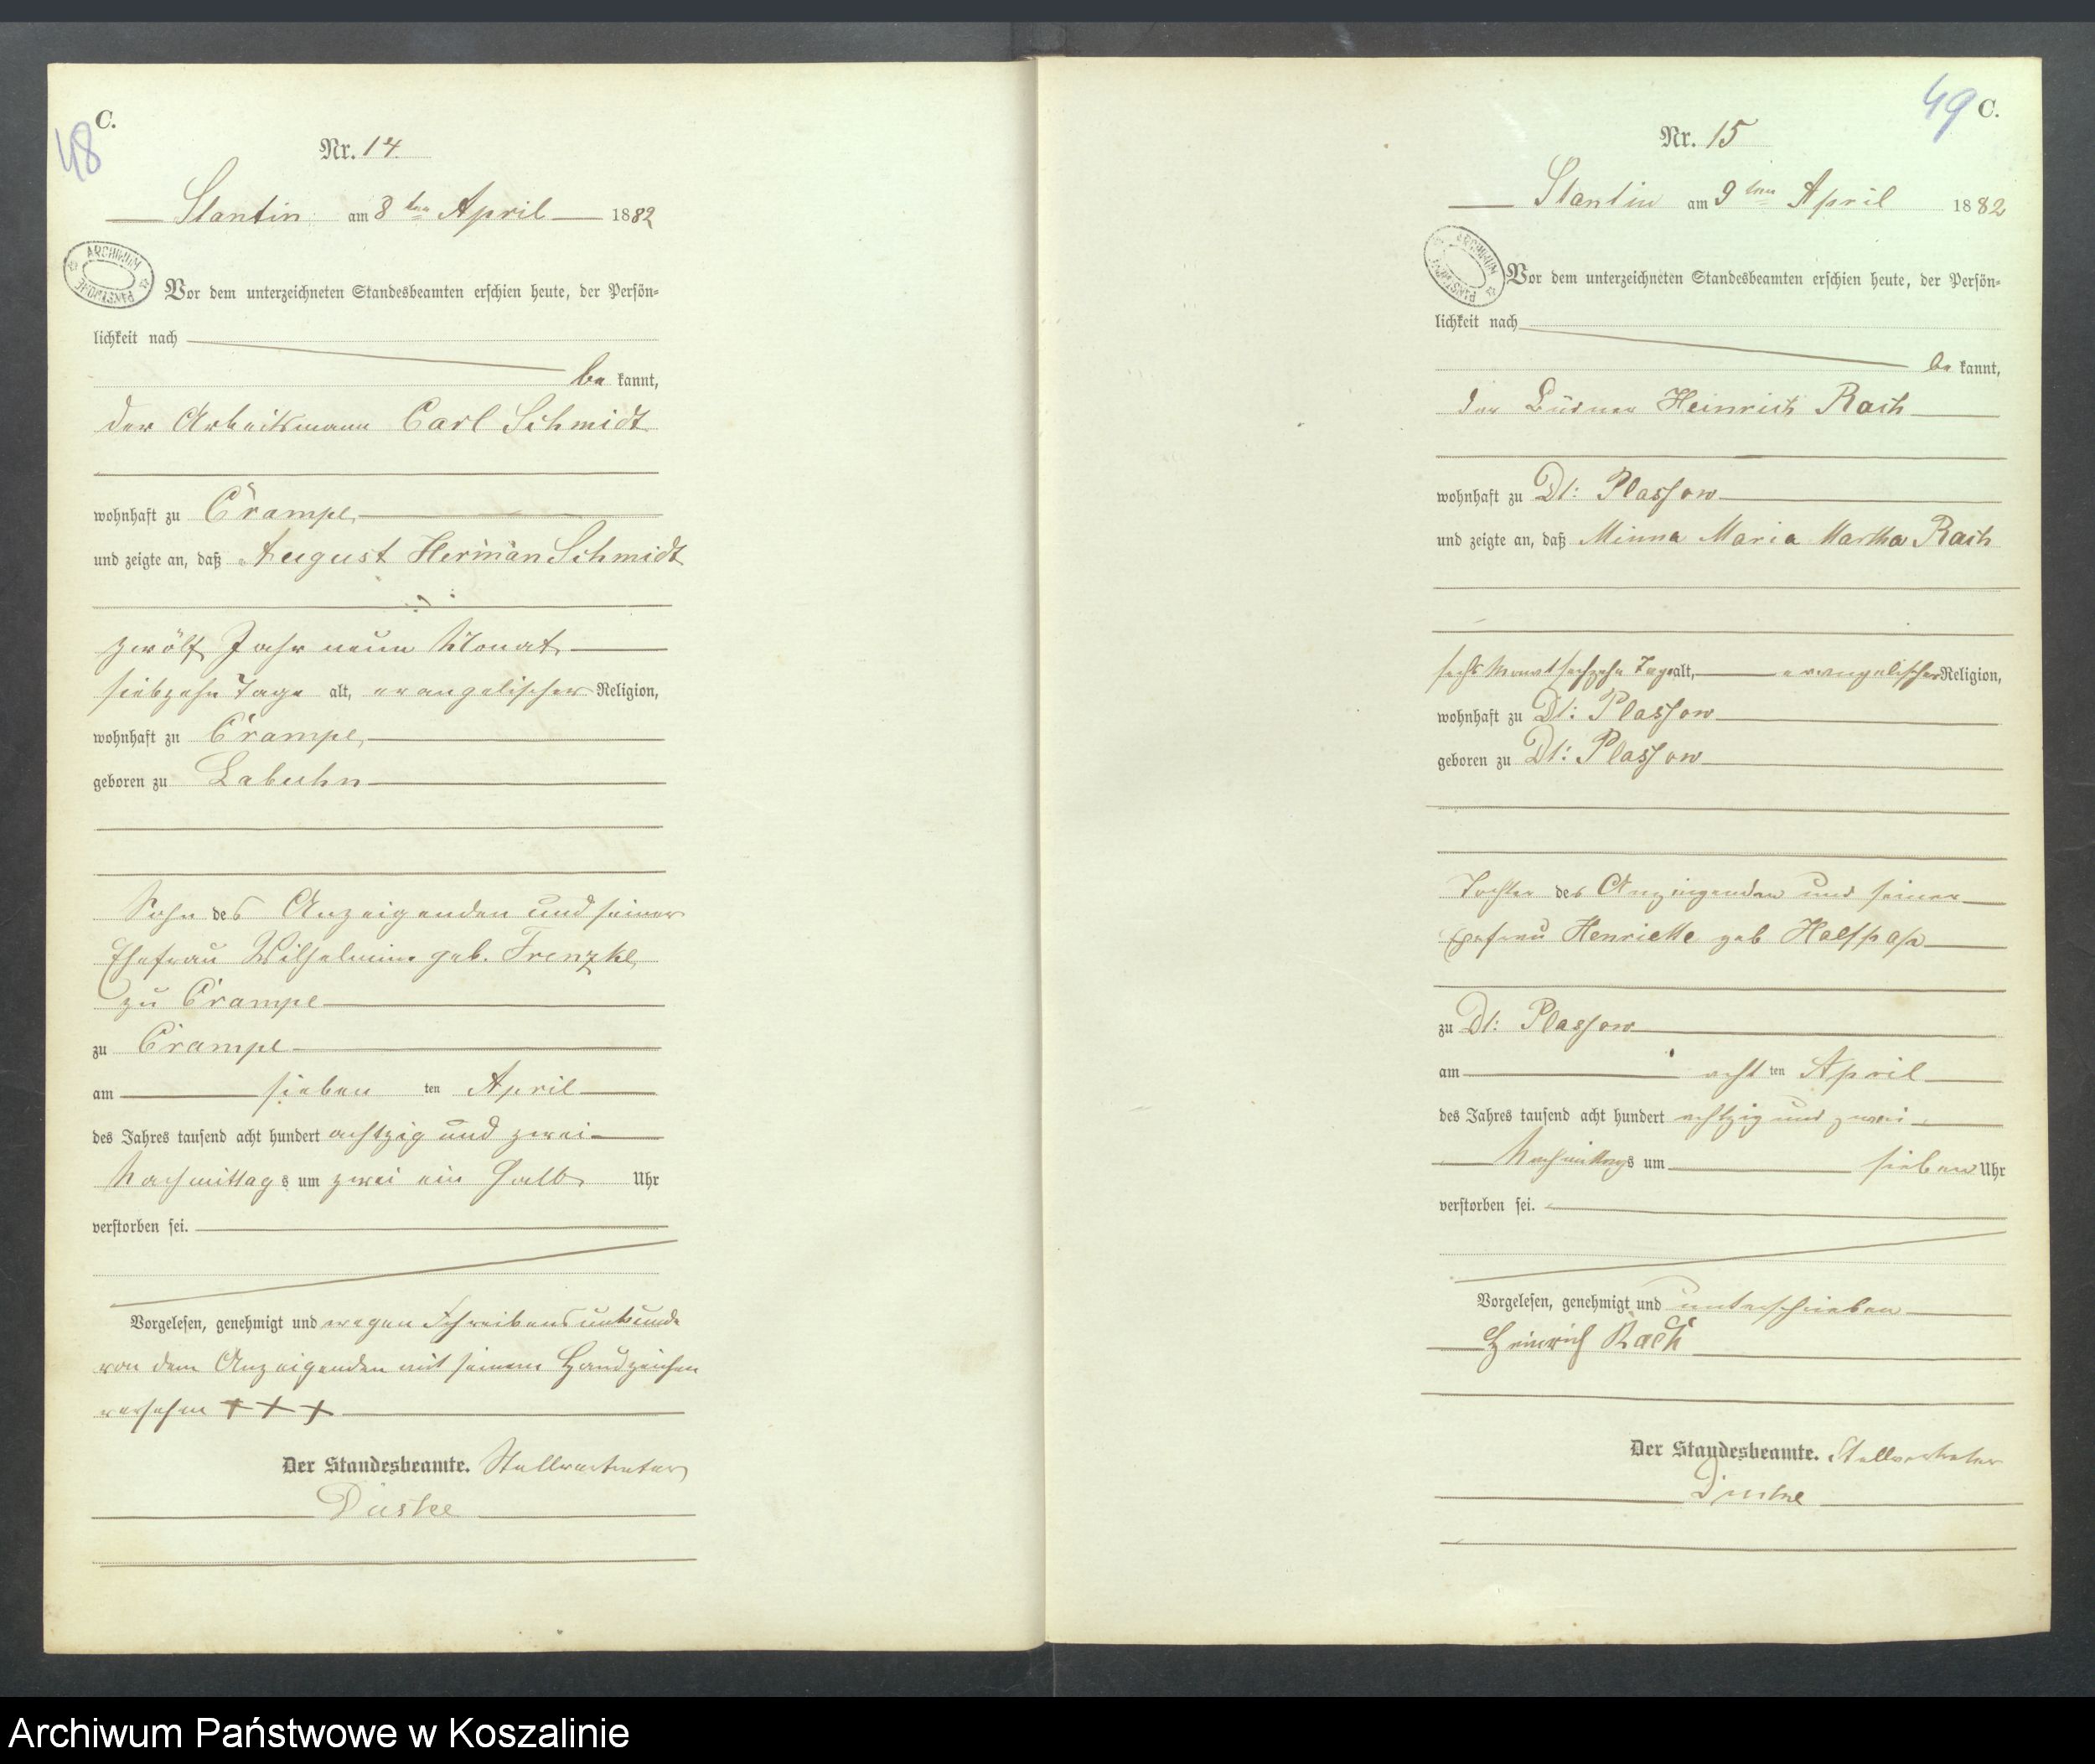 48
C.
Nr. 14
Stantin am 8ten April 1882
ARCHIWUM PAŃSTWOWE
Vor dem unterzeichneten Standesbeamten erschien heute, der Persön-
lichkeit nach
be kannt,
der Arbeitsmann Carl Schmidt
wohnhaft zu Crampe
und zeigte an, daß August Herman Schmidt
zwölf Jahr neun Monat
siebzehn Tage alt, evangelischer Religion,
wohnhaft zu Crampe
geboren zu Labuhn
Sohn des Anzeigenden und seiner
Ehefrau Wilhelmine geb. Frenzke
zu Crampe
zu Crampe
am sieben ten April
des Jahres tausend acht hundert achtzig und zwei
Nachmittags um zwei ein halb Uhr
verstorben sei.
Vorgelesen, genehmigt und wegen Schreibensunkunde
von dem Anzeigenden mit seinem Handzeichen
versehen + + +
Der Standesbeamte. Stellvertreter
49 C.
Nr. 15
Stantin am 9ten April 1882
ARCHIWUM PAŃSTWOWE
Vor dem unterzeichneten Standesbeamten erschien heute, der Persön-
lichkeit nach
be kannt,
der Büdner Heinrich Rach
wohnhaft zu Dt: Plassow
und zeigte an, daß Minna Maria Martha Rach
sechs Monat sechzehn Tage alt, evangelischer Religion,
wohnhaft zu Dt: Plassow
geboren zu Dt: Plassow
Tochter des Anzeigenden und seiner
Ehefrau Henriette geb Halfpap
zu Dt: Plassow
am acht ten April
des Jahres tausend acht hundert achtzig und zwei
Nachmittags um sieben Uhr
verstorben sei.
Vorgelesen, genehmigt und unterschrieben
Heinrich Rach
Der Standesbeamte. Stellvertreter
Archiwum Państwowe w Koszalinie